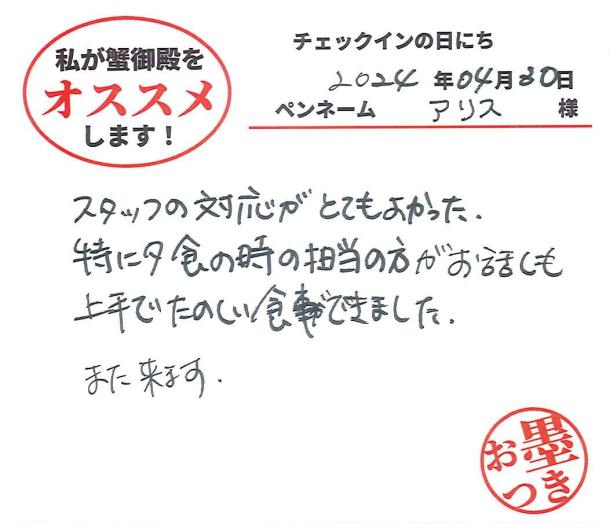 私が蟹御殿を
オススメ
します！
チェックインの日にち
2024年04月30日
ペンネーム アリス 様
スタッフの対応がとてもよかった.
特に夕食の時の担当の方がお話しも
上手でたのしい食事ができました.
また来ます.
お墨つき